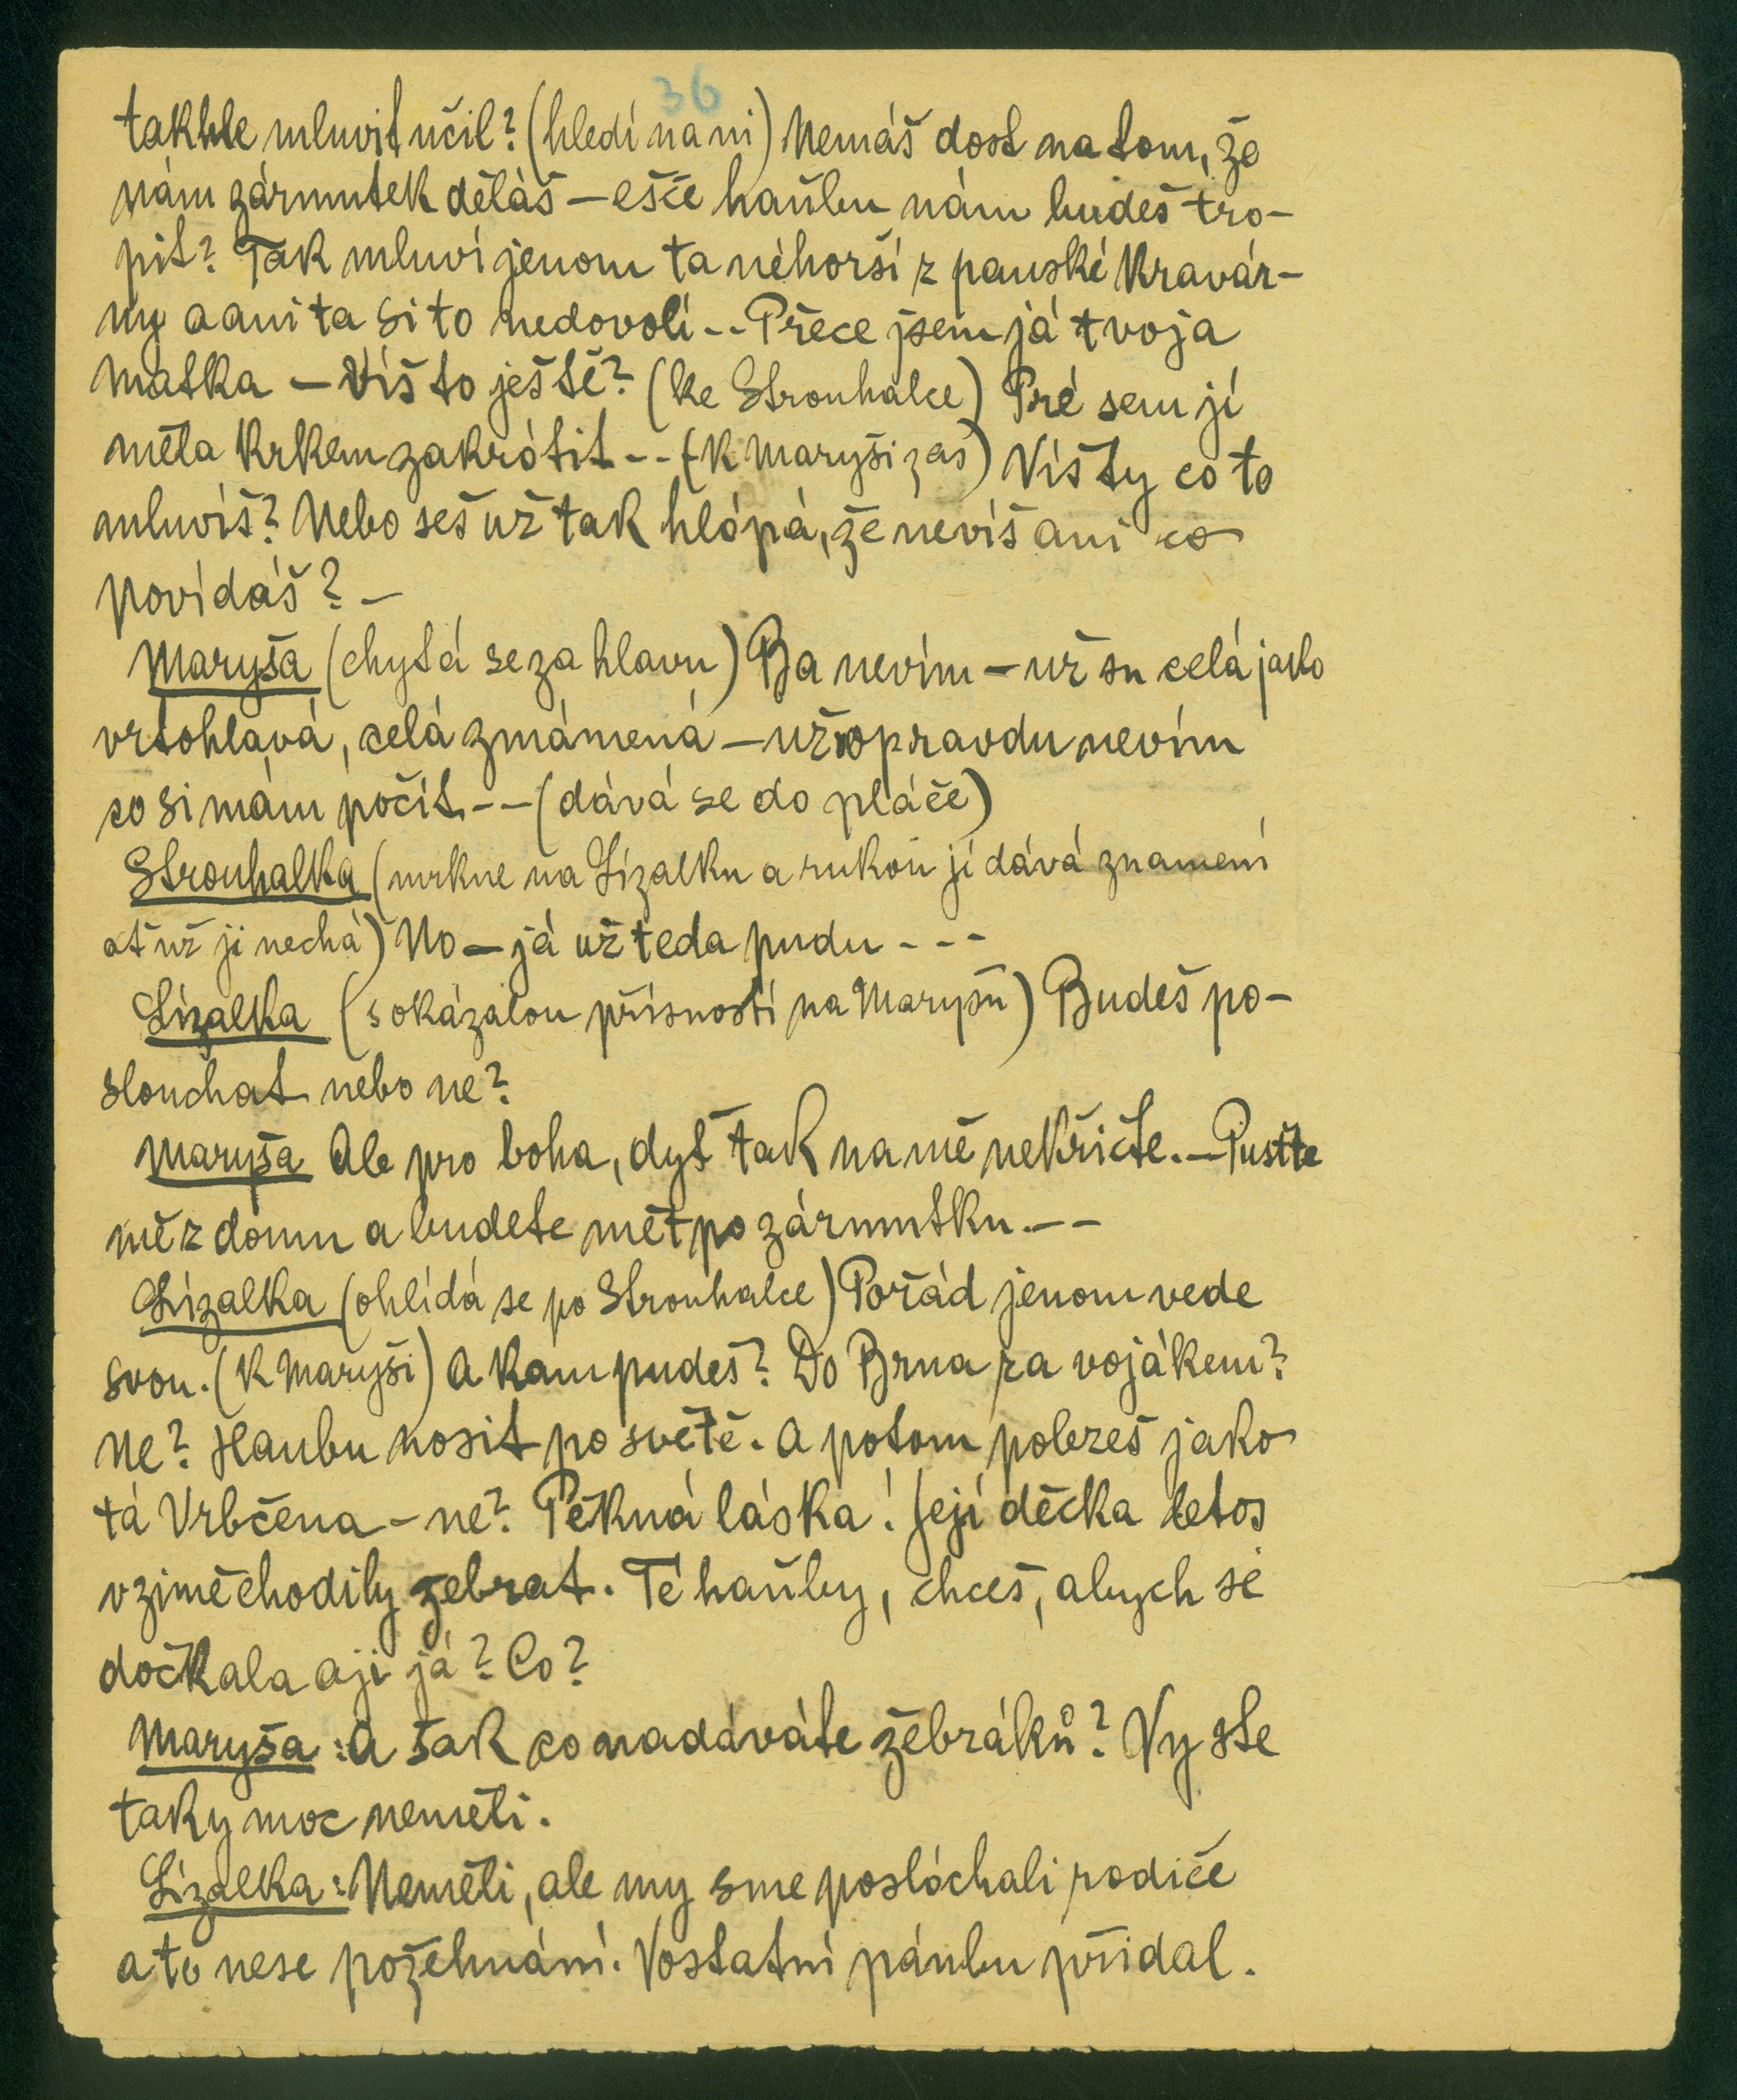 36
takhle mluvit učil? (hledí na ni) Nemáš dost na tom, že
nám zármutek děláš – ešče haňbu nám budeš tro-
pit? Tak mluví jenom ta néhorší z panské kravár-
ny a ani ta si to nedovolí -- Přece jsem já tvoja
matka – Víš to ještě? (ke Strouhalce) Pré sem jí
měla krkem zakrótit -- (k Maryši zas) Víš ty co to
mluvíš? Nebo seš už tak hlópá, že nevíš ani co
povídáš? –
Maryša (chytá se za hlavu) Ba nevím – už su celá jako
vrtohlavá, celá zmámená – už opravdu nevím
co si mám počít -- (dává se do pláče)
Strouhalka (mrkne na Lízalku a rukou jí dává znamení
ať už ji nechá) No – já už teda pudu - - -
Lízalka (s okázalou přísností na Maryšu) Budeš po-
slouchat nebo ne?
Maryša Ale pro boha, dyť tak na mě nekřičte. – Pusťte
mě z domu a budete mět po zármutku. --
Lízalka (ohlídá se po Strouhalce) Pořád jenom vede
svou. (k Maryši) A kam pudeš? Do Brna za vojákem?
Ne? Haubu nosit po světě. A potom polezeš jako
tá Vrbčena – ne? Pěkná láska! Její děcka letos
v zimě chodily žebrat. Té haňby, chceš, abych se
dočkala aji já? Co?
Maryša: A šak co nadáváte žebráků? Vy ste
taky moc neměli.
Lízalka: Neměli, ale my sme poslóchali rodiče
a to nese požehnání. Vostatní pánbu přidal.